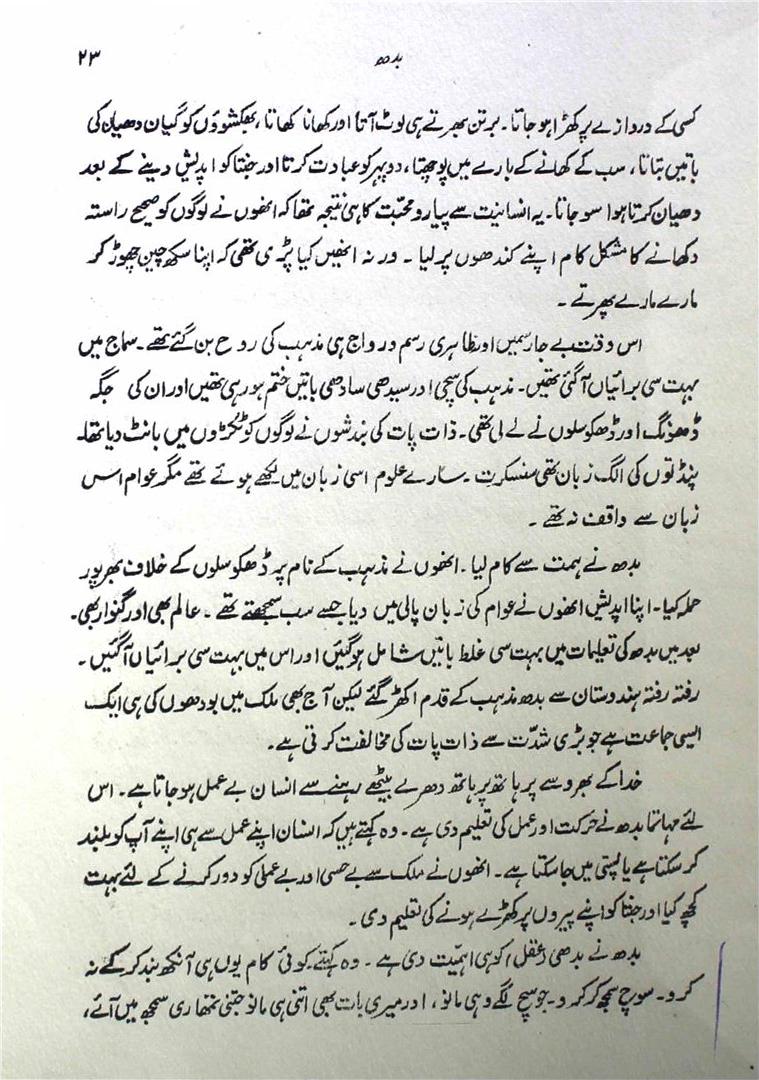 ۲۳ بدھ
کسی کے دروازے پر کھڑا ہو جاتا۔ برتن بھرتے ہی لوٹ آتا اور کھانا کھاتا، بھکشوؤں کو گیان دھیان کی
باتیں بتاتا، سب کے کھانے کے بارے میں پوچھتا، دوپہر کو عبادت کرتا اور جنتا کو اپدیش دینے کے بعد
دھیان کرتا ہوا سو جاتا۔ یہ انسانیت سے پیار و محبّت کا ہی نتیجہ تھا کہ انھوں نے لوگوں کو صحیح راستہ
دکھانے کا مشکل کام اپنے کندھوں پر لیا۔ ورنہ انھیں کیا پڑی تھی کہ اپنا سکھ چین چھوڑ کر
مارے مارے پھرتے۔
اس وقت بے جا رسمیں اور ظاہری رسم و رواج ہی مذہب کی روح بن گئے تھے۔ سماج میں
بہت سی برائیاں آگئی تھیں۔ مذہب کی سچی اور سیدھی سادھی باتیں ختم ہو رہی تھیں اور ان کی جگہ
ڈھونگ اور ڈھکوسلوں نے لے لی تھی۔ ذات پات کی بندشوں نے لوگوں کو ٹکڑوں میں بانٹ دیا تھا۔
پنڈتوں کی الگ زبان تھی سنسکرت۔ سارے علوم اسی زبان میں لکھے ہوئے تھے مگر عوام اس
زبان سے واقف نہ تھے۔
بدھ نے ہمت سے کام لیا۔ انھوں نے مذہب کے نام پر ڈھکوسلوں کے خلاف بھرپور
حملہ کیا۔ اپنا اپدیش انھوں نے عوام کی زبان پالی میں دیا جسے سب سمجھتے تھے۔ عالم بھی اور گنوار بھی۔
بعد میں بدھ کی تعلیمات میں بہت سی غلط باتیں شامل ہوگئیں اور اس میں بہت سی برائیاں آگئیں۔
رفتہ رفتہ ہندوستان سے بدھ مذہب کے قدم اکھڑ گئے لیکن آج بھی ملک میں بودھوں کی ہی ایک
ایسی جماعت ہے جو بڑی شدّت سے ذات پات کی مخالفت کرتی ہے۔
خدا کے بھروسے پر ہاتھ پر ہاتھ دھرے بیٹھے رہنے سے انسان بے عمل ہو جاتا ہے۔ اس
لئے مہاتما بدھ نے حرکت اور عمل کی تعلیم دی ہے۔ وہ کہتے ہیں کہ انسان اپنے عمل سے ہی اپنے آپ کو بلند
کر سکتا ہے یا پستی میں جا سکتا ہے۔ انھوں نے ملک سے بے حسی اور بے عملی کو دور کرنے کے لئے بہت
کچھ کیا اور جنتا کو اپنے پیروں پر کھڑے ہونے کی تعلیم دی۔
بدھ نے بدھی (عقل) کو ہی اہمیّت دی ہے۔ وہ کہتے۔ کوئی کام یوں ہی آنکھ بند کر کے نہ
کرو۔ سوچ سمجھ کر کرو۔ جو سچ لگے وہی مانو، اور میری بات بھی اتنی ہی مانو جتنی تمھاری سمجھ میں آئے،